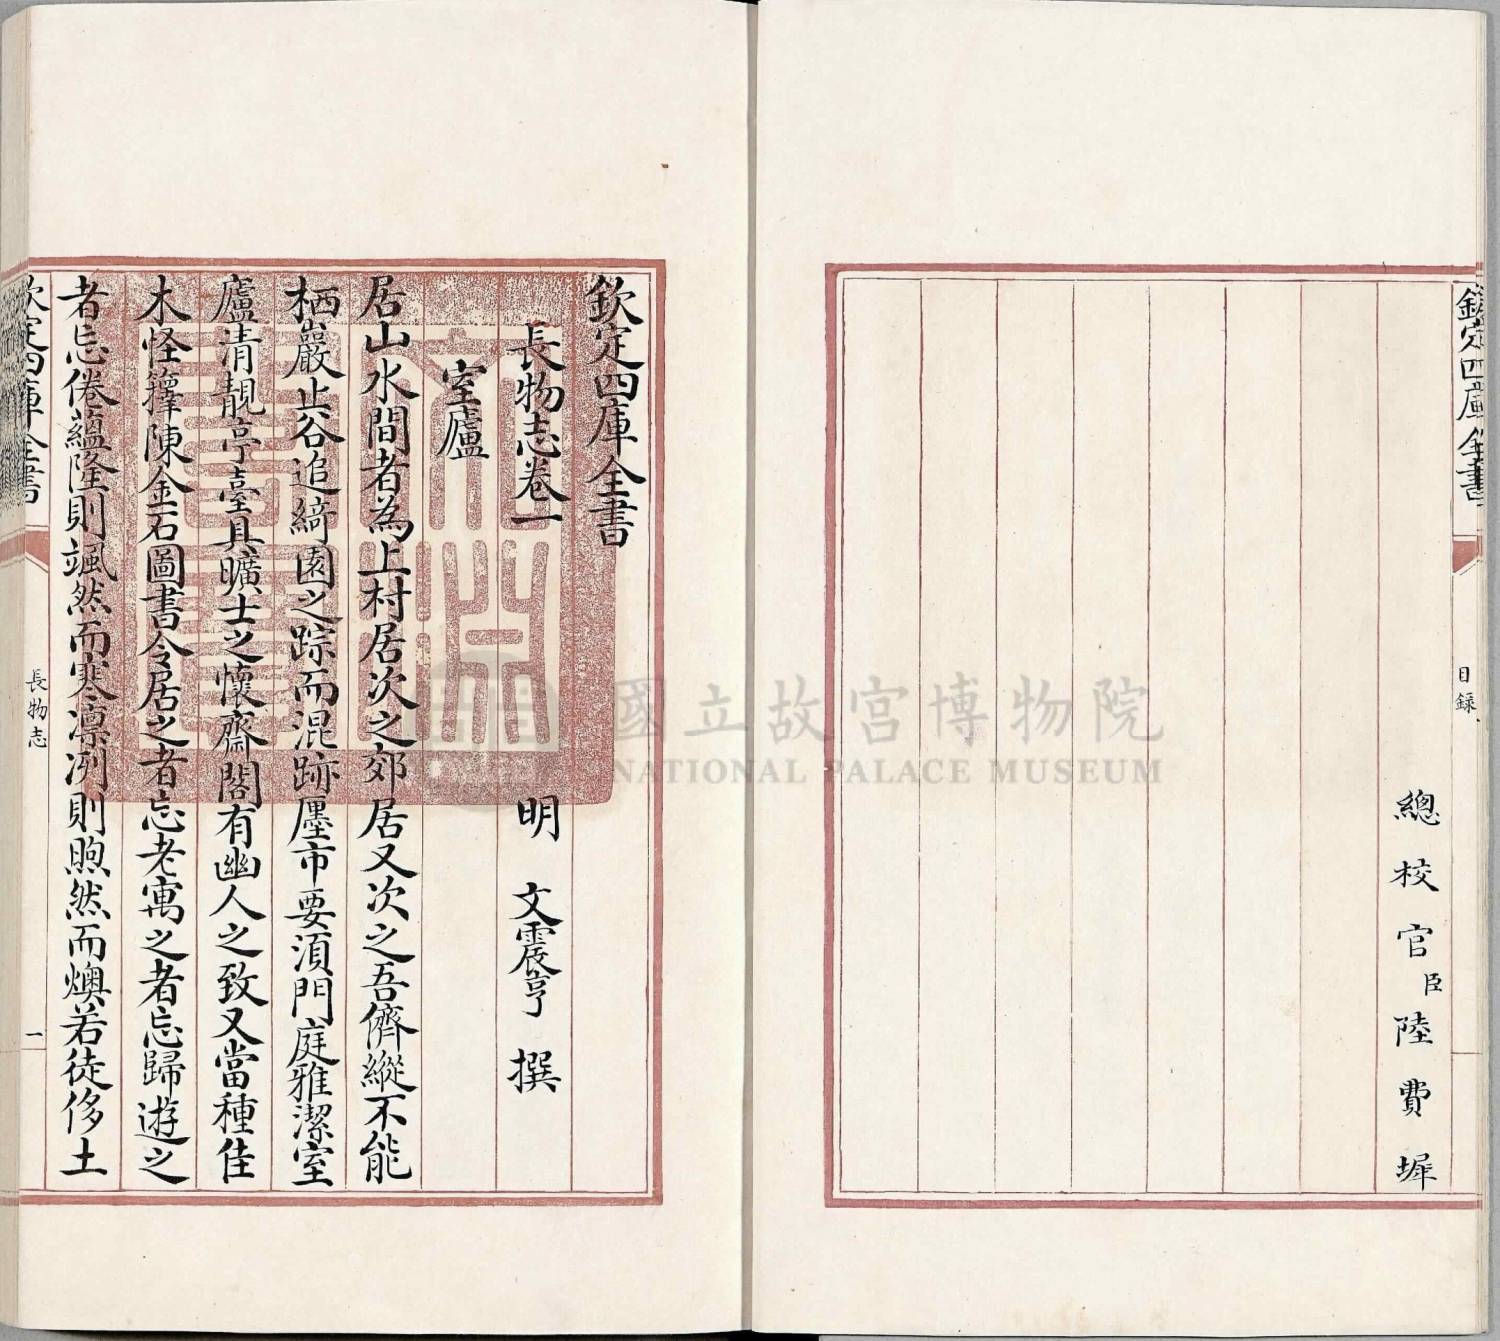 欽定四庫全書
目録
總校官臣陸費墀
欽定四庫全書
長物志卷一
明 文震亨 撰
室廬
居山水間者為上村居次之郊居又次之吾儕縱不能
栖巖止谷追綺園之踪而混跡廛市要須門庭雅潔室
廬清靚亭臺具曠士之懷齋閣有幽人之致又當種佳
木怪籜陳金石圖書令居之者忘老寓之者忘歸遊之
者忘倦蘊隆則颯然而寒凛冽則煦然而燠若徒侈土
欽定四庫全書
長物志
一
國立故宮博物院
NATIONAL PALACE MUSEUM